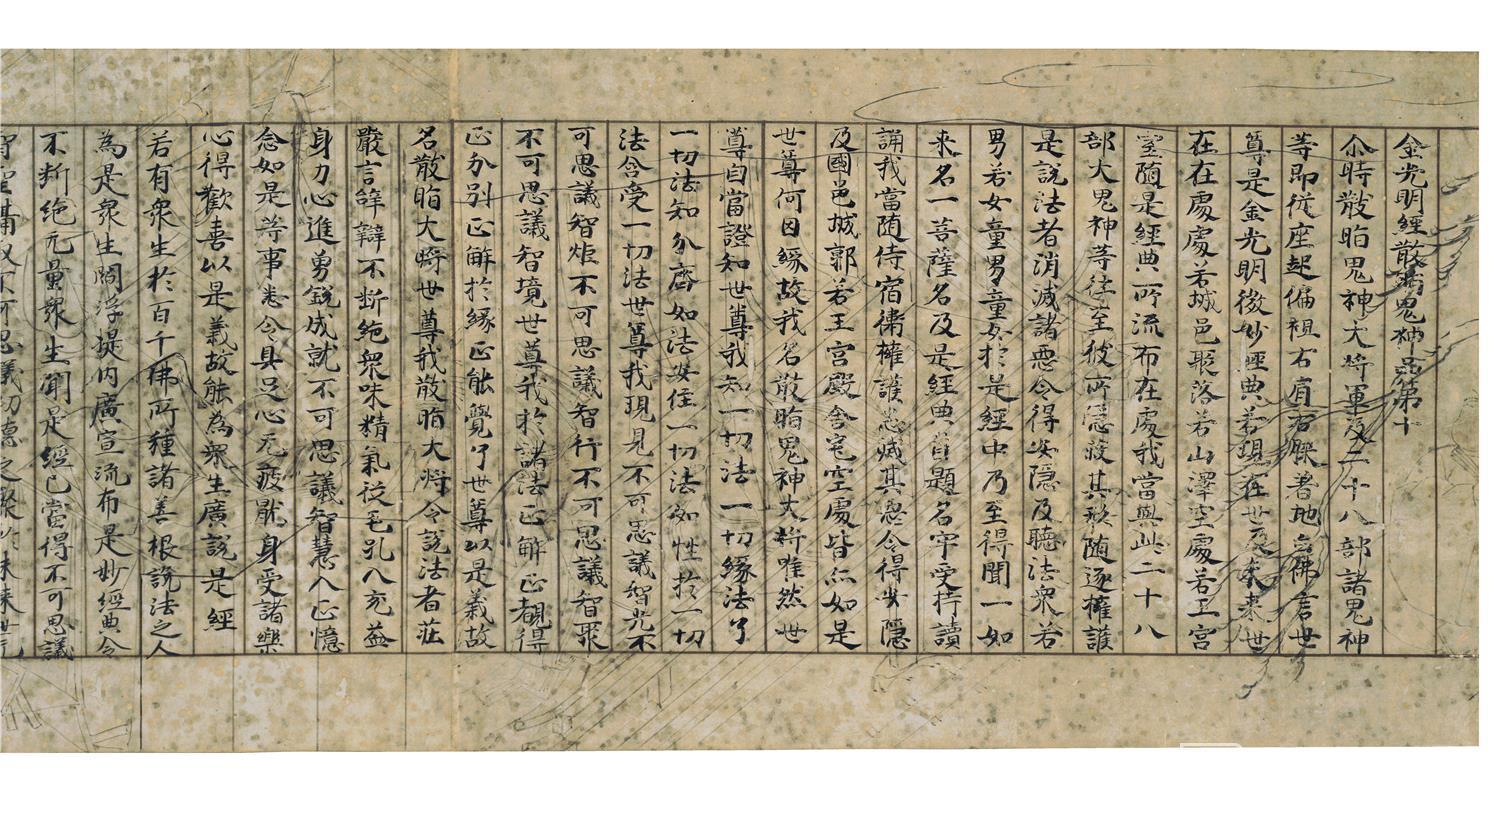 金光明經散脂鬼神品第十
尒時散脂鬼神大將軍及二十八部諸鬼神
等即從座起偏袒右肩右膝著地白佛言世
尊是金光明微妙經典若現在世及未來世
在在處處若城邑聚落若山澤空處若王宮
宅隨是經典所流布在處我當與此二十八
部大鬼神等往至彼所隱蔽其形隨逐擁護
是說法者消滅諸惡令得安隱及聽法衆若
男若女童男童女於是經中乃至得聞一如
來名一菩薩名及是經典首題名字受持讀
誦我當随侍宿衛擁護悉滅其惡令得安隱
及國邑城郭若王宮殿舍宅空處皆亦如是
世尊何因緣故我名散脂鬼神大將唯然世
尊自當證知世尊我知一切法一切緣法了
一切法知分齊如法安住一切法如性於一切
法含受一切法世尊我現見不可思議智光不
可思議智炬不可思議智行不可思議智聚
不可思議智境世尊我於諸法正解正觀得
正分別正解於緣正能覺了世尊以是義故
名散脂大將世尊我散脂大將令說法者莊
嚴言辭辯不斷絶衆味精氣從毛孔入充益
身力心進勇銳成就不可思議智慧入正憶
念如是等事悉令具足心无疲猒身受諸樂
心得歡喜以是義故能為衆生廣說是經
若有衆生於百千佛所種諸善根說法之人
為是衆生閻浮提內廣宣流布是妙經典令
不斷絶无量衆生聞是經已當得不可思議
智聚